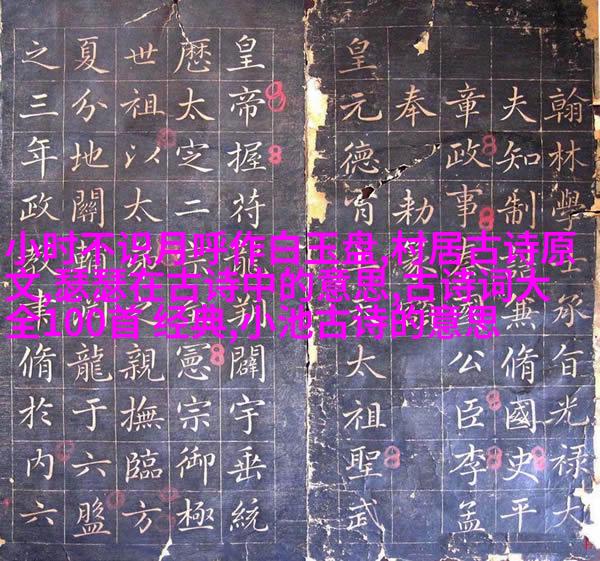 小时不识月呼作白玉盘,村居古诗原
文,瑟瑟在古诗中的意思,古诗词大
全100首 经典,小池古诗的意思
翰林學士承旨光祿大
夫知制誥兼脩國史平
章政事公臣李孟
奉敕篆
皇元德胄太祖聖武
皇帝握符龍翔闢宇垂統
厯太定二宗憲宗御極
世祖以太之親撫臨方
夏分地關輔龍于六盤
之三年政教脩於內六